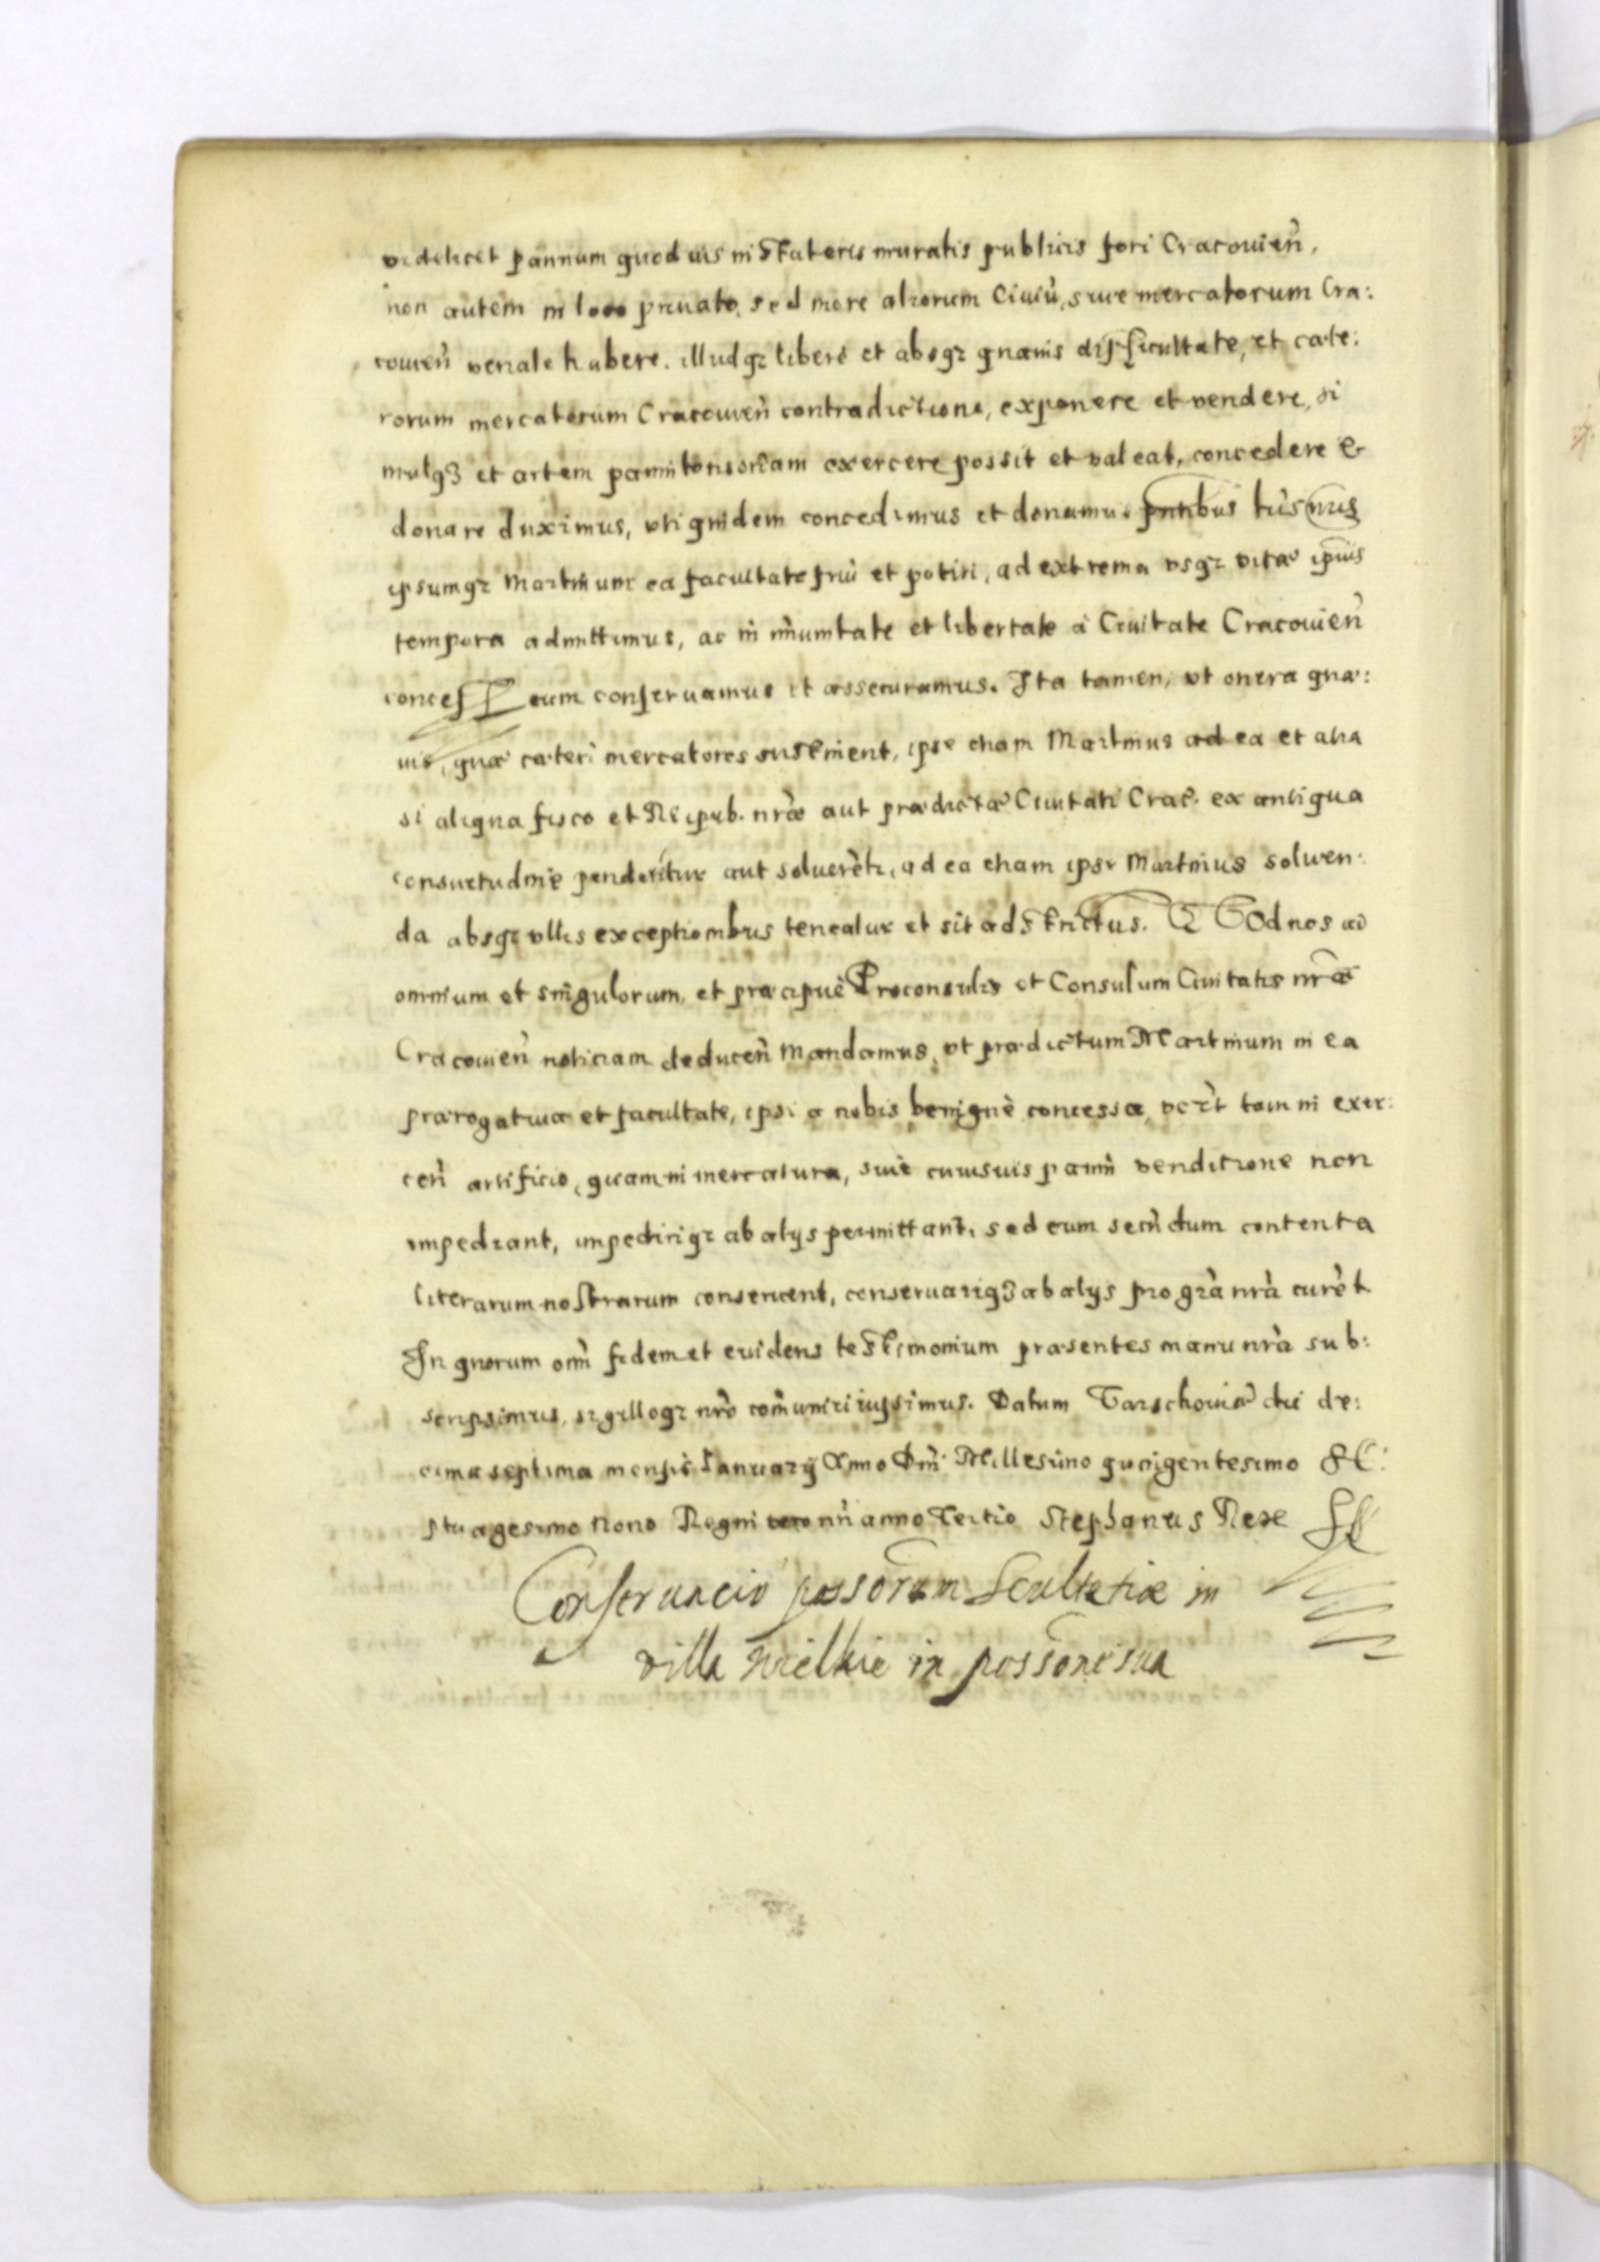 videlicet pannum quoduis in Stateris muratis publicis fori Cracouien̄,
non autem in loco priuato, sed more aliorum Ciuiū, siue mercatorum Cra:
couien̄ venale habere. illudq; liberè et absq; quauis difficultate, et cæte:
rorum mercatorum Cracouien̄ contradictione, exponere et vendere, si
mulq; et artem pannitonsoriam exercere possit et valeat, concedere &
donare duximus, vti quidem concedimus et donamus pn̄tibus lr̄is nr̄is
ipsumq; Martinum ea facultate frui et potiri, ad extrema vsq; vitæ ipius
tempora admittimus, ac in im̄unitate et libertate à Ciuitate Cracouien̄
concess eum conseruamus et assecuramus. Ita tamen, vt onera quæ:
uis, quæ cæteri mercatores sustinent, ipse etiam Martinus ad ea et alia
si aliqua fisco et Reipub. nr̄æ aut prædictæ Ciuitati Crac̄. ex antiqua
consuetudine penderētur aut soluerēt, ad ea etiam ipse Martinus soluen:
da absq; vllis exceptionibus teneatur et sit adstrictus. Q Od nos ad
omnium et singulorum, et præcipuè Proconsulis et Consulum Ciuitatis nr̄æ
Cracouien̄ noticiam deducen̄ Mandamus, vt prædictum Martinum in ea
prærogatiua et facultate, ipsi a nobis benignè concessa, tam in exer:
cen̄ artificio, quam in mercatura, siue cuiusuis pann̄i venditione non
impediant, impediriq; ab alijs permittant, sed eum secūdum contenta
literarum nostrarum conseruent, conseruariq; ab alijs pro gr̄a nr̄a curēt
In quorum om̄i fidem et euidens testimonium præsentes manu nr̄a sub:
scripsimus, sigilloq; nr̄o com̄uniri iussimus. Datum die de:
cima septima mensis Ianuarij Anno Dn̄i Millesimo quingentesimo
ptuagesimo Nono Regni vero nr̄i anno Tertio Stephanus Rex
Conseruacio possor̄um Scultetiæ in
villa Wielkie in possōne sua